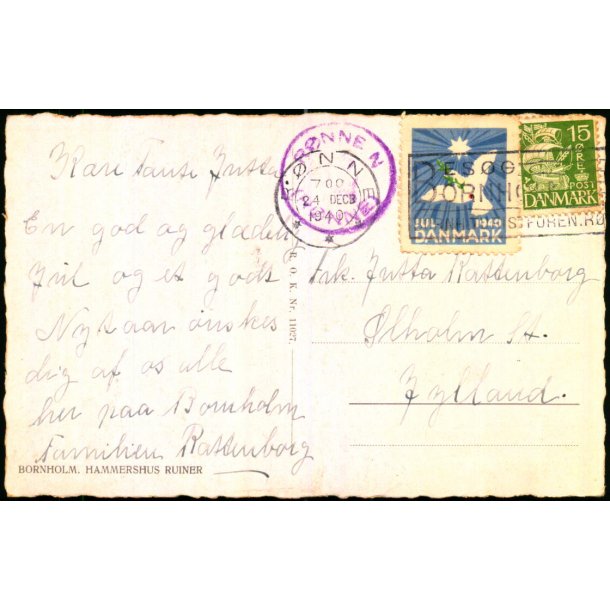 Kære Tante Jutta
En god og glædelig
Jul og et godt
Nytaar ønskes
dig af os alle
her paa Bornholm
Familien Rattenborg
BORNHOLM. HAMMERSHUS RUINER
R. O. K. Nr. 11027
RØNNE N
RØNNE
700
24 DECB
1940
JUL 1940
DANMARK
15
ØRE
POST
DANMARK
BESØG
BORNHOLM
FOREN.RØ
Frk. Jutta Rattenborg
Ølholm St.
Jylland.